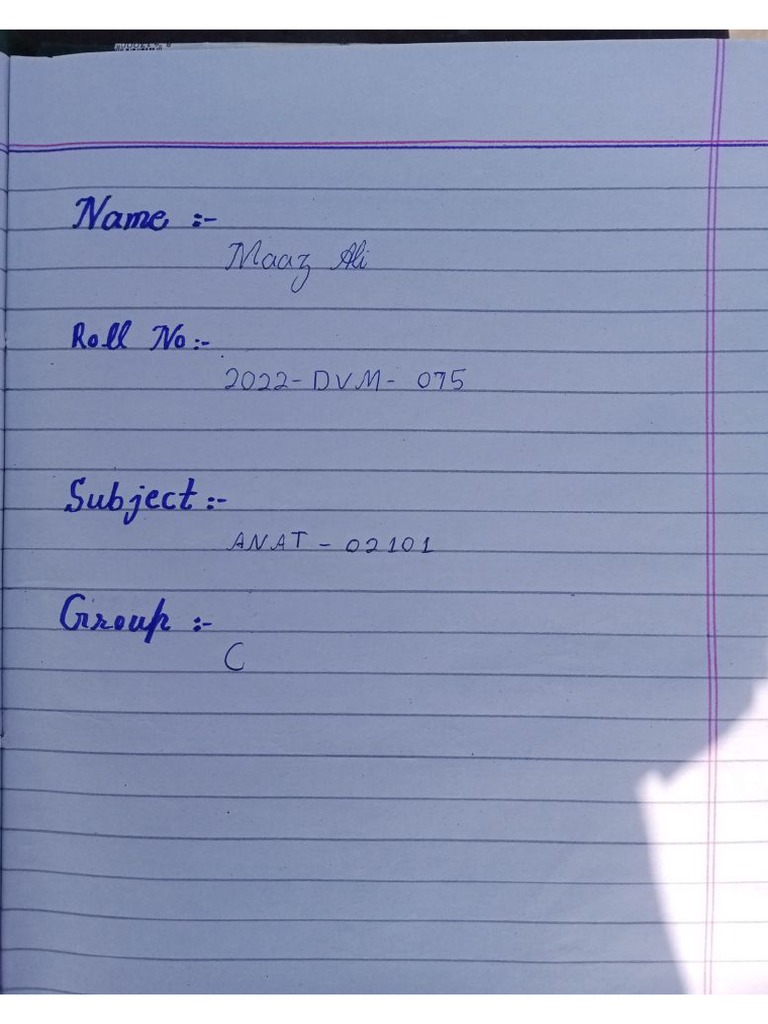 Name :-
Maaz Ali
Roll No:-
2022-DVM- 075
Subject:-
ANAT - 02101
Group :-
C